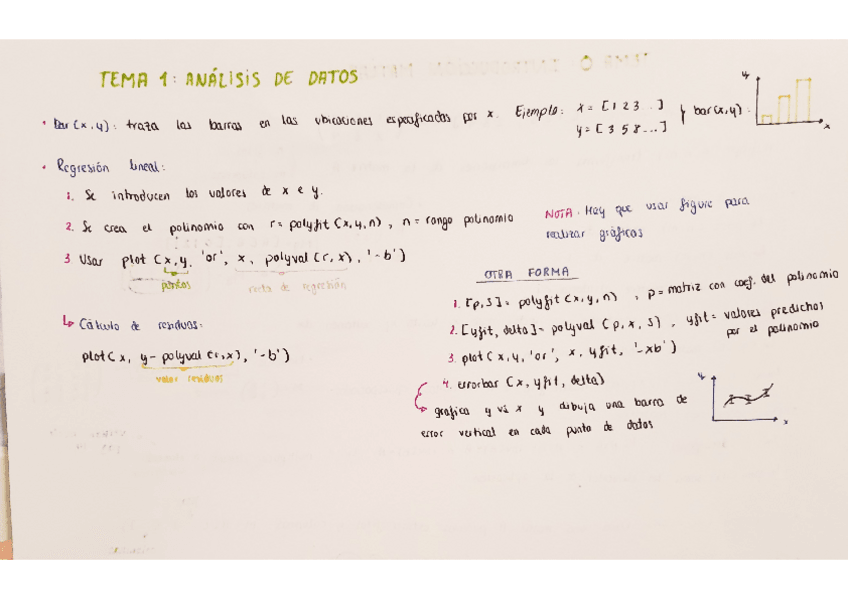 TEMA 1: ANÁLISIS DE DATOS
• bar (x,y): traza las barras en las ubicaciones especificadas por x. Ejemplo: x = [1 2 3 ..] } bar(x,y):
y = [3 5 8 ...]
y
x
• Regresión lineal:
1. Se introducen los valores de x e y.
2. Se crea el polinomio con r = polyfit (x,y,n), n = rango polinomio
3 Usar plot (x,y, 'or', x, polyval (r,x), '-b')
puntos
recta de regresión
NOTA: Hay que usar figure para
realizar gráficos
↳ Cálculo de residuos:
plot(x, y-polyval (r,x), '-b')
valor residuos
OTRA FORMA
1. [p,S] = polyfit (x,y,n), p = matriz con coef. del polinomio
2. [yfit, delta] = polyval (p,x,S), yfit = valores predichos
por el polinomio
3. plot (x,y,'or', x, yfit, '-xb')
4. errorbar (x, yfit, delta)
grafica y vs x y dibuja una barra de
error vertical en cada punto de datos
y
x